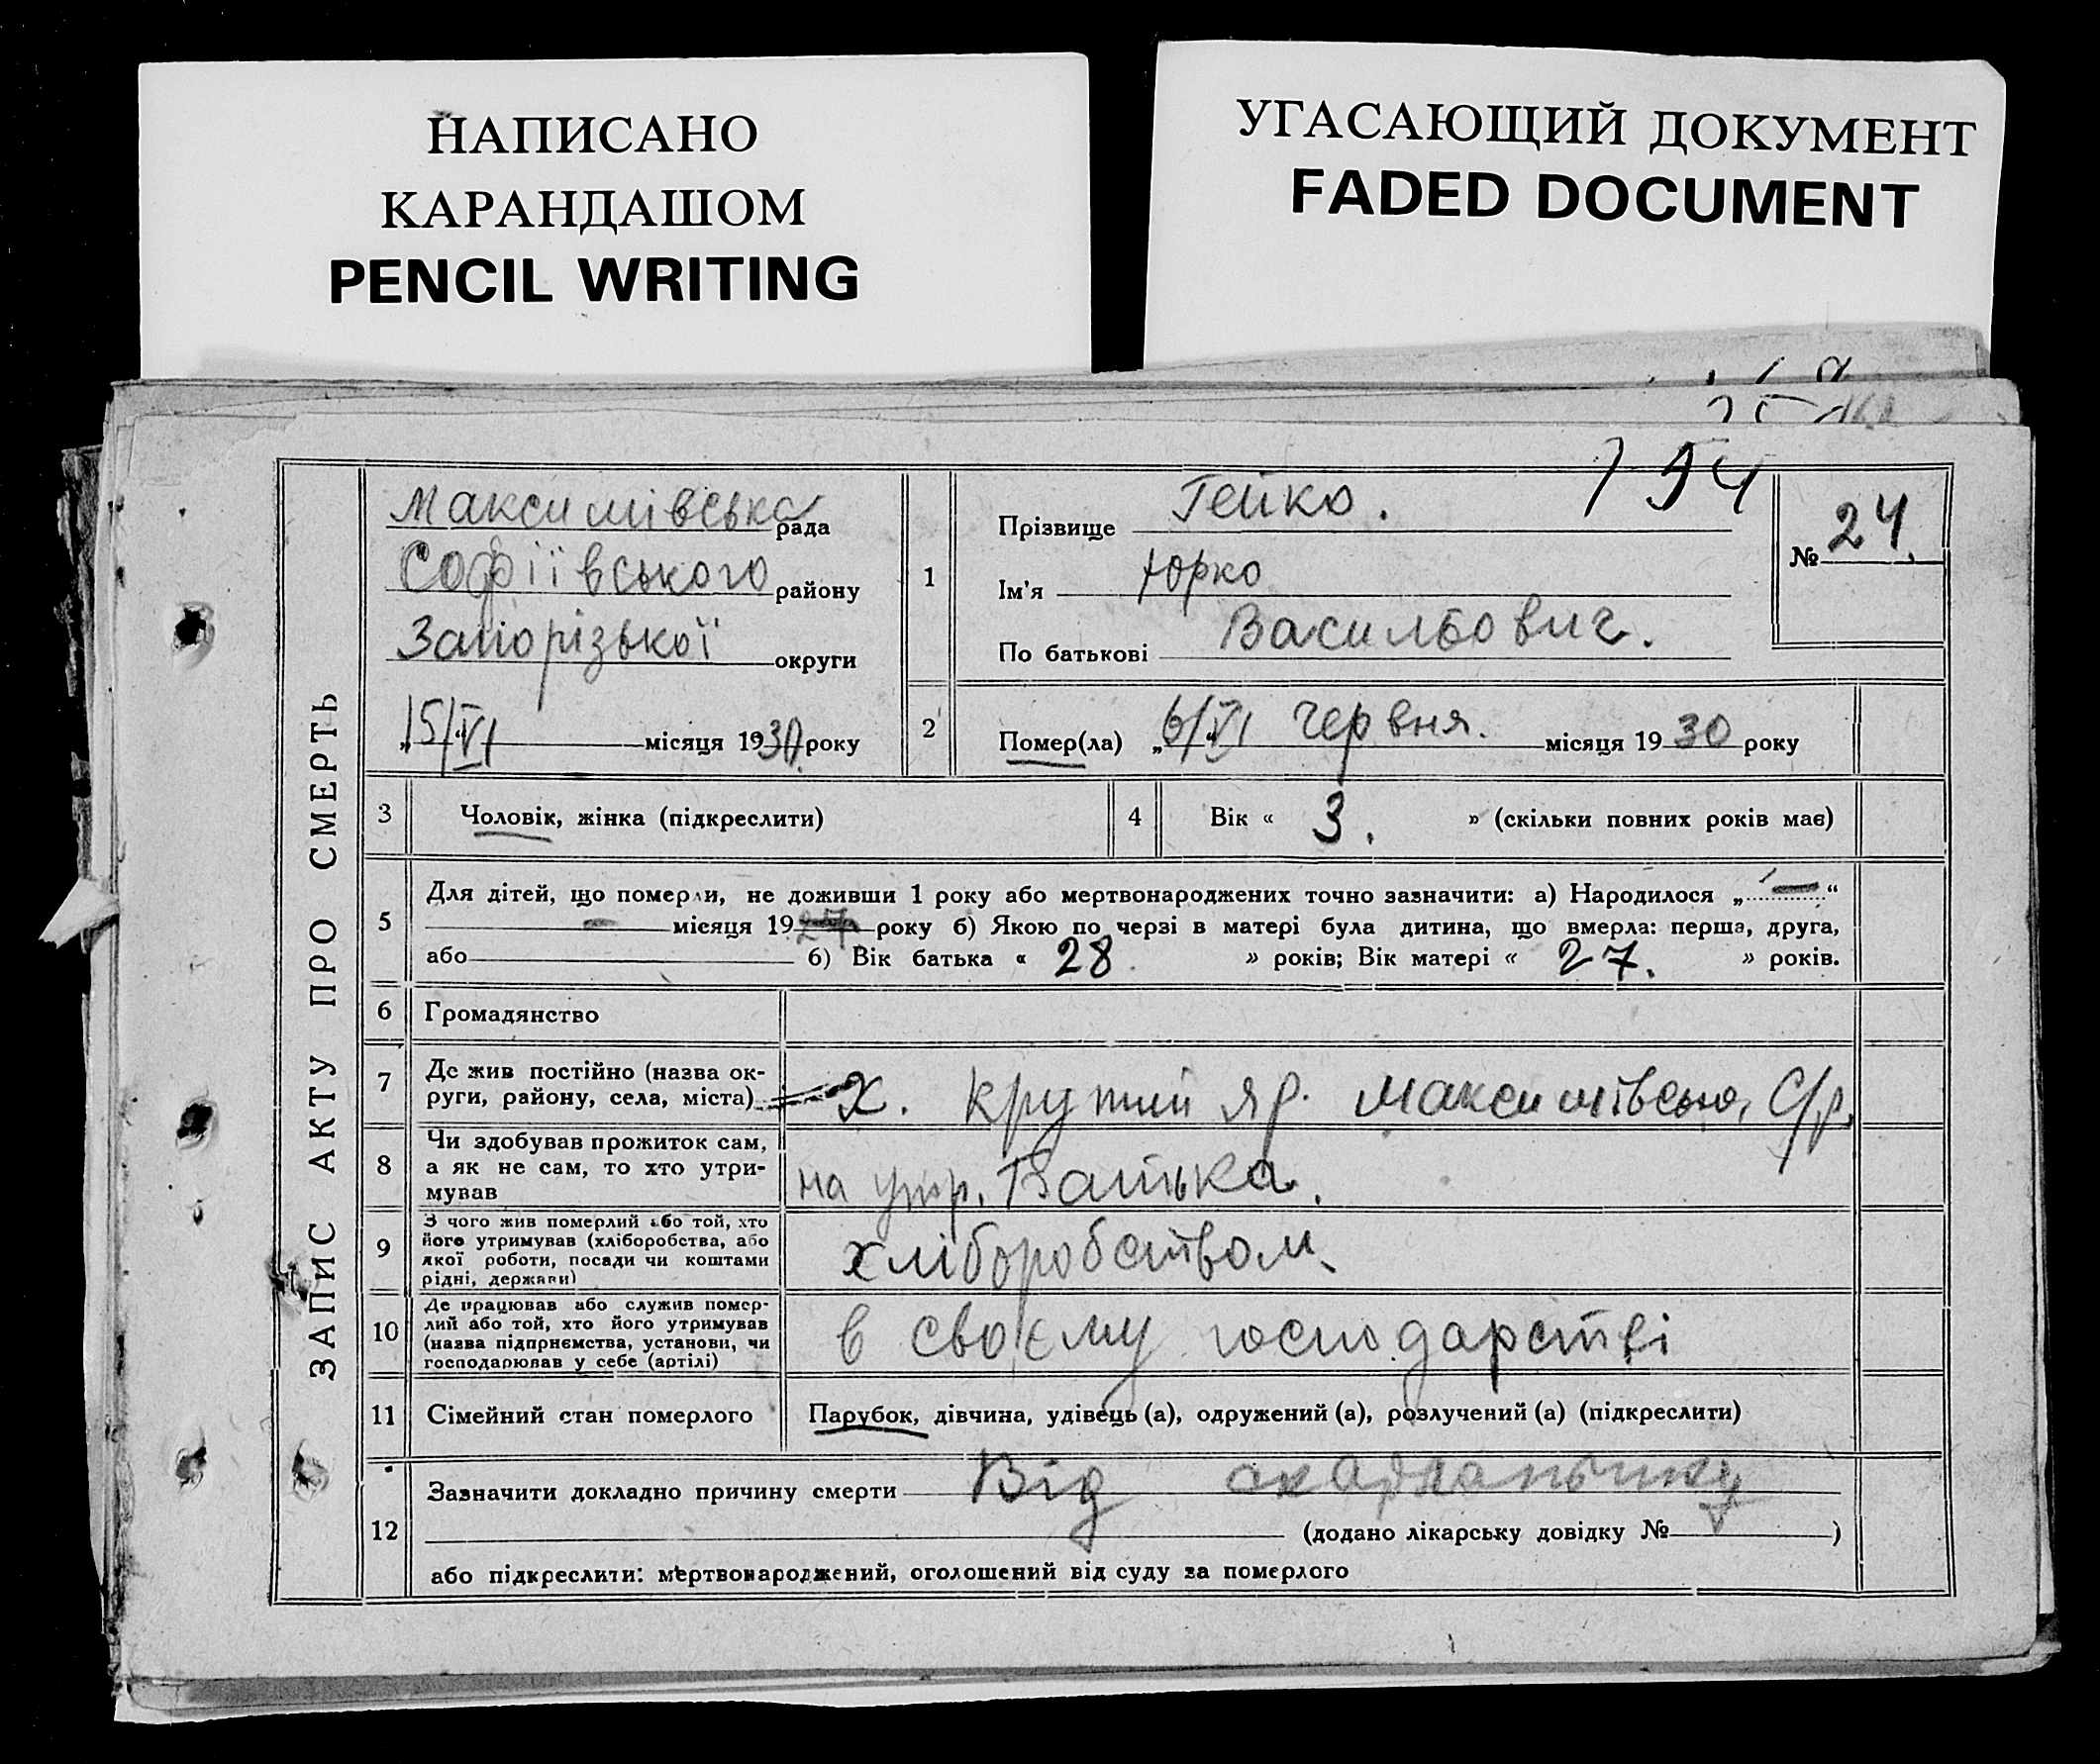 НАПИСАНО
КАРАНДАШОМ
PENCIL WRITING
УГАСАЮЩИЙ ДОКУМЕНТ
FADED DOCUMENT
154
ЗАПИС АКТУ ПРО СМЕРТЬ
Максимівська рада
Софіївського району
Запорізької округи
„15/VI місяця 1930 року
1
Прізвище Гейко.
Ім'я Юрко
По батькові Васильович.
№ 24.
2
Помер(ла) „6/VI червня. місяця 1930 року
3 Чоловік, жінка (підкреслити)
4 Вік « 3. » (скільки повних років має)
5 Для дітей, що померли, не доживши 1 року або мертвонароджених точно зазначити: а) Народилося „ — “
— місяця 1927 року б) Якою по черзі в матері була дитина, що вмерла: перша, друга,
або б) Вік батька « 28 » років; Вік матері « 27. » років.
6 Громадянство
7 Де жив постійно (назва ок-
руги, району, села, міста)
х. Крутий яр. Максимівсько, С/р.
8 Чи здобував прожиток сам,
а як не сам, то хто утри-
мував
на утр. Батька.
9 З чого жив померлий або той, хто
його утримував (хліборобства, або
якої роботи, посади чи коштами
рідні, держави)
хліборобством
10 Де працював або служив помер-
лий або той, хто його утримував
(назва підприємства, установи, чи
господарював у себе (артілі)
в своєму господарстві
11 Сімейний стан померлого
Парубок, дівчина, удівець (а), одружений (а), розлучений (а) (підкреслити)
12 Зазначити докладно причину смерти Від
(додано лікарську довідку № )
або підкреслити: мертвонароджений, оголошений від суду за померлого